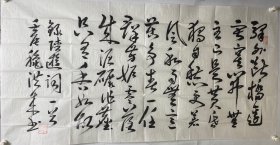 驿外断橋邊
寂寞開無
主已是黄昏
獨自愁更著
風和雨無意
苦争春一任
群芳妒零落
成泥碾作塵
只有香如故
錄陸游詞一首